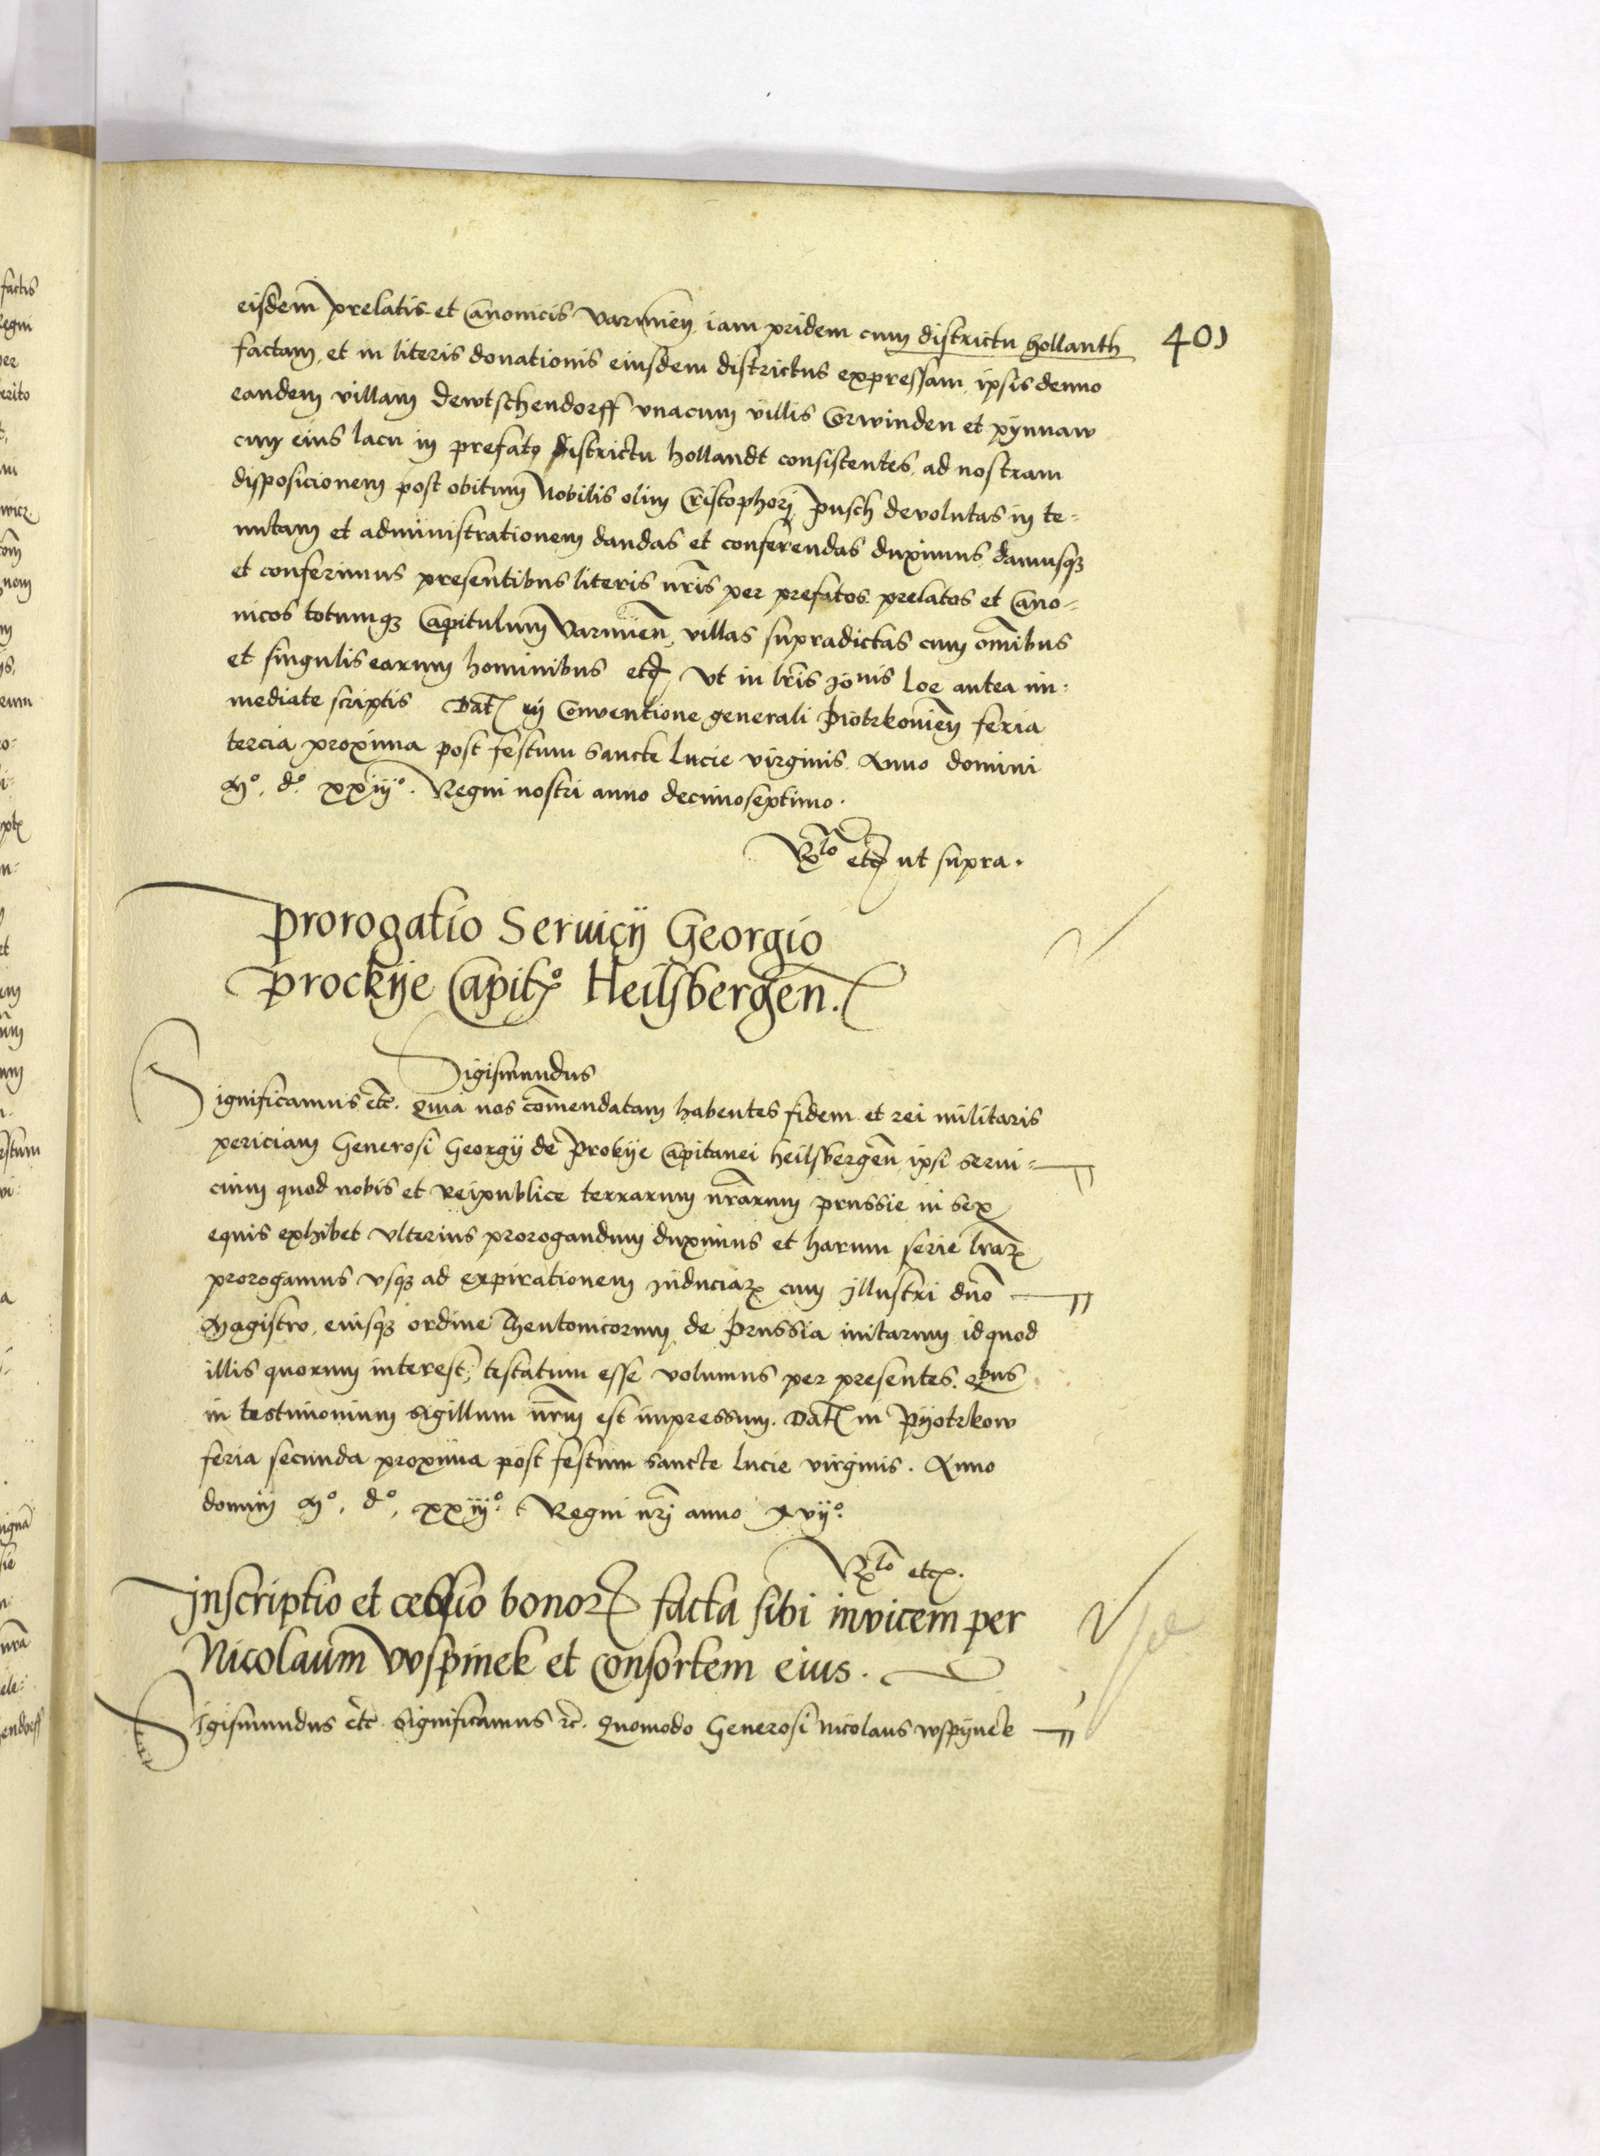 401
eisdem prelatis et Canonicis Varmien. iam pridem cum districtu hollanth
factam, et in literis donationis eiusdem districtus expressam, ipsis denuo
eandem villam dewtschendorff vnacum villis Corwinden et pynnaw
cum eius lacu in prefato districtu hollandt consistentes, ad nostram
disposicionem post obitum Nobilis olim Cristophori Pusch devolutas in te=
nutam et administrationem dandas et conferendas duximus, damusq3
et conferimus presentibus literis nr̄is per prefatos prelatos et Cano=
nicos totumq3 Capitulum Varmien̄ villas supradictas cum om̄ibus
et singulis earum hominibus etc̄ Vt in lr̄is Jo nis loe antea im=
mediate scriptis Dat̄ in Conventione generali Piotrkovien̄ feria
tercia proxima post festum sancte lucie virginis Anno domini
Mº. dº. xxiijº. Regni nostri anno decimoseptimo.
R lo etc̄ ut supra.
Prorogatio Seruicij Georgio
Prockije Capitº Heilsbergen̄.
Sigismundus
Significamus etc̄. Quia nos com̄endatam habentes fidem et rei militaris
periciam Generosi Georgij de Prokije Capitanei heilsbergen̄ ipsi serui=
cium quod nobis et Reipublice terrarum nr̄arum prussie in sex
equis exhibet vlterius prorogandum duximus et harum serie lrar̄
prorogamus vsq3 ad expirationem Induciar̄ cum Illustri dno̅
Magistro, eiusq3 ordine Theutonicorum de Prussia initarum id quod
illis quorum interest, testatum esse volumus per presentes. Qbus
in testimonium sigillum nr̄m est impressum. Dat̄ in Pyotrkow
feria secunda proxima post festum sancte lucie virginis. Anno
domini Mº, dº, xxiijº. Regni nr̄i anno xvijº.
R lo etc̄.
Inscriptio et cessio bonor̄ facta sibi invicem per
Nicolaum Wspinek et Consortem eius.
Sigismundus etc̄. Significamus ꝛc̄. Quomodo Generosi Nicolaus wspijnek